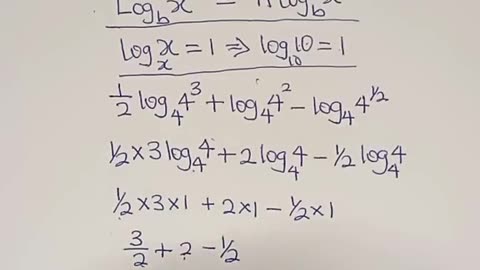 Log_b x = n log_b x
log_x x = 1 ⇒ log_10 10 = 1
½ log_4 4³ + log_4 4² − log_4 4^½
½ × 3 log_4 4 + 2 log_4 4 − ½ log_4 4
½ × 3 × 1 + 2 × 1 − ½ × 1
3/2 + 2 − ½